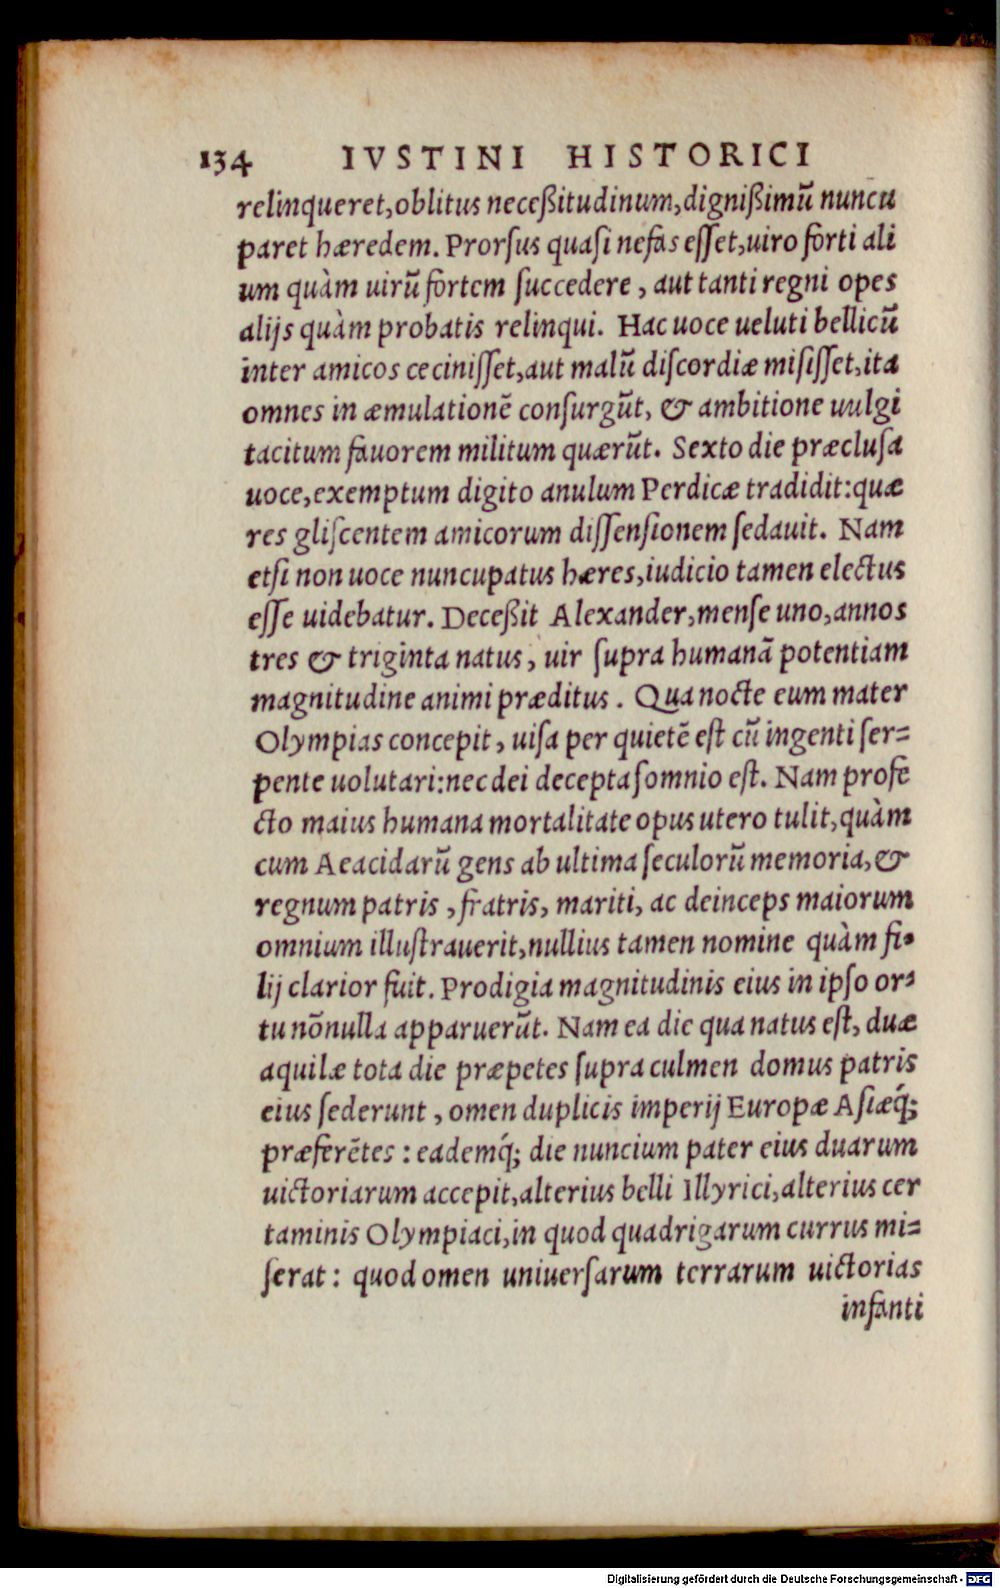 134 IVSTINI HISTORICI
relinqueret,oblitus neceßitudinum,dignißimũ nuncu
paret hæredem. Prorſus quaſi nefas eſſet,uiro forti ali
um quàm uirũ fortem ſuccedere, aut tanti regni opes
alijs quàm probatis relinqui. Hac uoce ueluti bellicũ
inter amicos ceciniſſet,aut malũ diſcordiæ miſiſſet,ita
omnes in æmulationẽ conſurgũt, & ambitione uulgi
tacitum fauorem militum quærũt. Sexto die præcluſa
uoce,exemptum digito anulum Perdicæ tradidit:quæ
res gliſcentem amicorum diſſenſionem ſedauit. Nam
etſi non uoce nuncupatus hæres,iudicio tamen electus
eſſe uidebatur. Deceßit Alexander,menſe uno,annos
tres & triginta natus, uir ſupra humanã potentiam
magnitudine animi præditus. Qua nocte eum mater
Olympias concepit, uiſa per quietẽ eſt cũ ingenti ſer=
pente uolutari:nec dei decepta ſomnio eſt. Nam profe
cto maius humana mortalitate opus utero tulit,quàm
cum Aeacidarũ gens ab ultima ſeculorũ memoria,&
regnum patris, fratris, mariti, ac deinceps maiorum
omnium illuſtrauerit,nullius tamen nomine quàm fi=
lij clarior fuit. Prodigia magnitudinis eius in ipſo or=
tu nõnulla apparuerũt. Nam ea die qua natus eſt, duæ
aquilæ tota die præpetes ſupra culmen domus patris
eius ſederunt, omen duplicis imperij Europæ Aſiæq́;
præferẽtes: eademq́; die nuncium pater eius duarum
uictoriarum accepit,alterius belli Illyrici,alterius cer
taminis Olympiaci,in quod quadrigarum currus mi=
ſerat: quod omen uniuerſarum terrarum uictorias
infanti
Digitalisierung gefördert durch die Deutsche Forschungsgemeinschaft - DFG